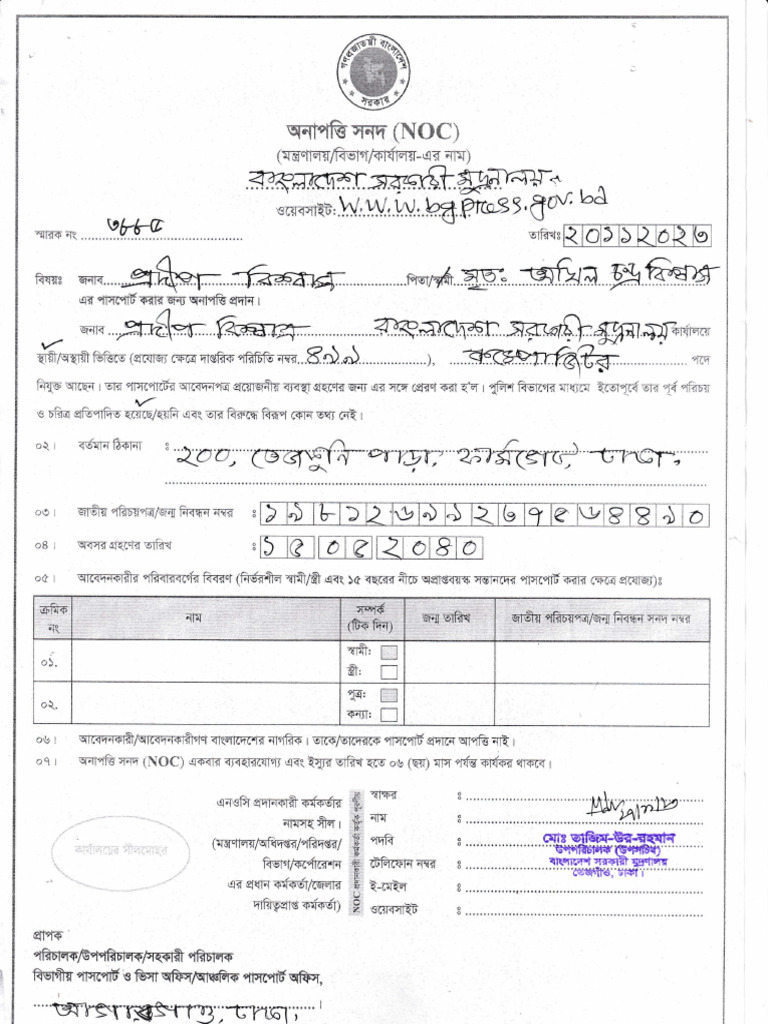 গণপ্রজাতন্ত্রী বাংলাদেশ
সরকার
অনাপত্তি সনদ (NOC)
(মন্ত্রণালয়/বিভাগ/কার্যালয়-এর নাম)
বাংলাদেশ সরকারী মুদ্রণালয়
ওয়েবসাইট: www.bgpress.gov.bd
স্মারক নং
তারিখঃ ২০১১২০২৩
বিষয়ঃ জনাব প্রদীপ বিশ্বাস পিতা/স্বামী মৃতঃ অখিল চন্দ্র বিশ্বাস
এর পাসপোর্ট করার জন্য অনাপত্তি প্রদান।
জনাব প্রদীপ বিশ্বাস বাংলাদেশ সরকারী মুদ্রনালয় কার্যালয়ে
স্থায়ী/অস্থায়ী ভিত্তিতে (প্রযোজ্য ক্ষেত্রে দাপ্তরিক পরিচিতি নম্বর ৪৯৯), কম্পোজিটর পদে
নিযুক্ত আছেন। তার পাসপোর্টের আবেদনপত্র প্রয়োজনীয় ব্যবস্থা গ্রহণের জন্য এর সঙ্গে প্রেরণ করা হ'ল। পুলিশ বিভাগের মাধ্যমে ইতোপূর্বে তার পূর্ব পরিচয়
ও চরিত্র প্রতিপাদিত হয়েছে/হয়নি এবং তার বিরুদ্ধে বিরূপ কোন তথ্য নেই।
০২। বর্তমান ঠিকানা : ২০০, তেজকুনি পাড়া, ফার্মগেট, ঢাকা।
০৩। জাতীয় পরিচয়পত্র/জন্ম নিবন্ধন নম্বর : ১৯৮১২৬৯৯২৩৭৫৬৪৪৯০
০৪। অবসর গ্রহণের তারিখ : ১৫০৫২০৪০
০৫। আবেদনকারীর পরিবারবর্গের বিবরণ (নির্ভরশীল স্বামী/স্ত্রী এবং ১৫ বছরের নীচে অপ্রাপ্তবয়স্ক সন্তানদের পাসপোর্ট করার ক্ষেত্রে প্রযোজ্য)ঃ
ক্রমিক নং নাম সম্পর্ক (টিক দিন) জন্ম তারিখ জাতীয় পরিচয়পত্র/জন্ম নিবন্ধন সনদ নম্বর
০১. স্বামী:
স্ত্রী:
০২. পুত্র:
কন্যা:
০৬। আবেদনকারী/আবেদনকারীগণ বাংলাদেশের নাগরিক। তাকে/তাদেরকে পাসপোর্ট প্রদানে আপত্তি নাই।
০৭। অনাপত্তি সনদ (NOC) একবার ব্যবহারযোগ্য এবং ইস্যুর তারিখ হতে ০৬ (ছয়) মাস পর্যন্ত কার্যকর থাকবে।
কার্যালয়ের সীলমোহর
এনওসি প্রদানকারী কর্মকর্তার
নামসহ সীল।
(মন্ত্রণালয়/অধিদপ্তর/পরিদপ্তর/
বিভাগ/কর্পোরেশন
এর প্রধান কর্মকর্তা/জেলার
দায়িত্বপ্রাপ্ত কর্মকর্তা)
NOC প্রদানকারী কর্মকর্তা কর্তৃক পূরণীয়
স্বাক্ষর :
নাম :
পদবি :
টেলিফোন নম্বর :
ই-মেইল :
ওয়েবসাইট :
মোঃ তাজিম-উর-রহমান
উপপরিচালক (উপসচিব)
বাংলাদেশ সরকারী মুদ্রণালয়
তেজগাঁও, ঢাকা।
প্রাপক
পরিচালক/উপপরিচালক/সহকারী পরিচালক
বিভাগীয় পাসপোর্ট ও ভিসা অফিস/আঞ্চলিক পাসপোর্ট অফিস,
আগারগাঁও, ঢাকা।